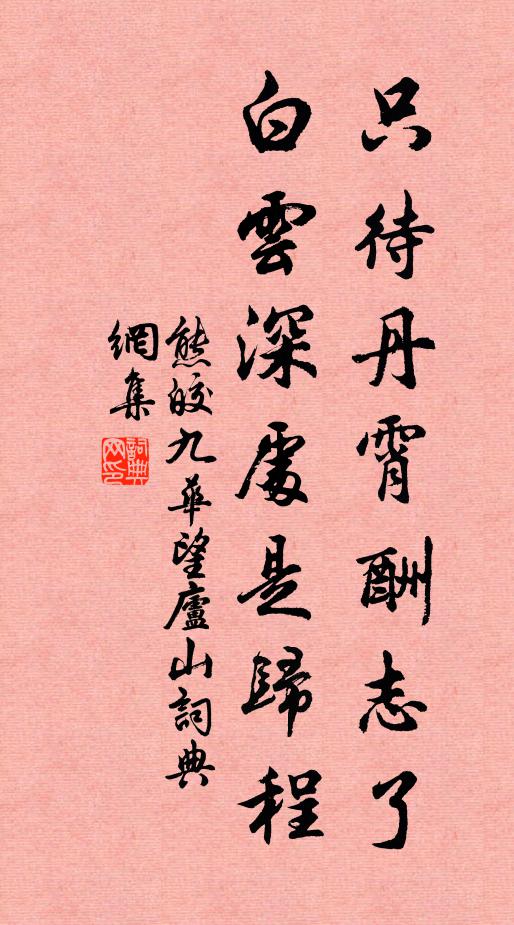 只待丹霄酬志了
白雲深處是歸程
熊皎九華望廬山詞典
網集
詞典
网印